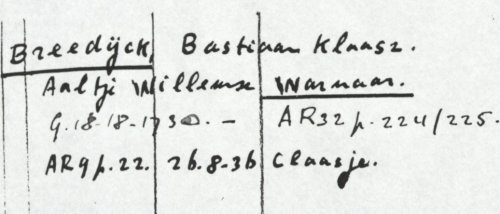 Breedijck, Bastiaan Klaasz.
Aaltje Willemse Warnaar.
G. 18-18-1730. - AR32 p. 224/225.
AR9 p. 22. 26.8-36 Claasje.